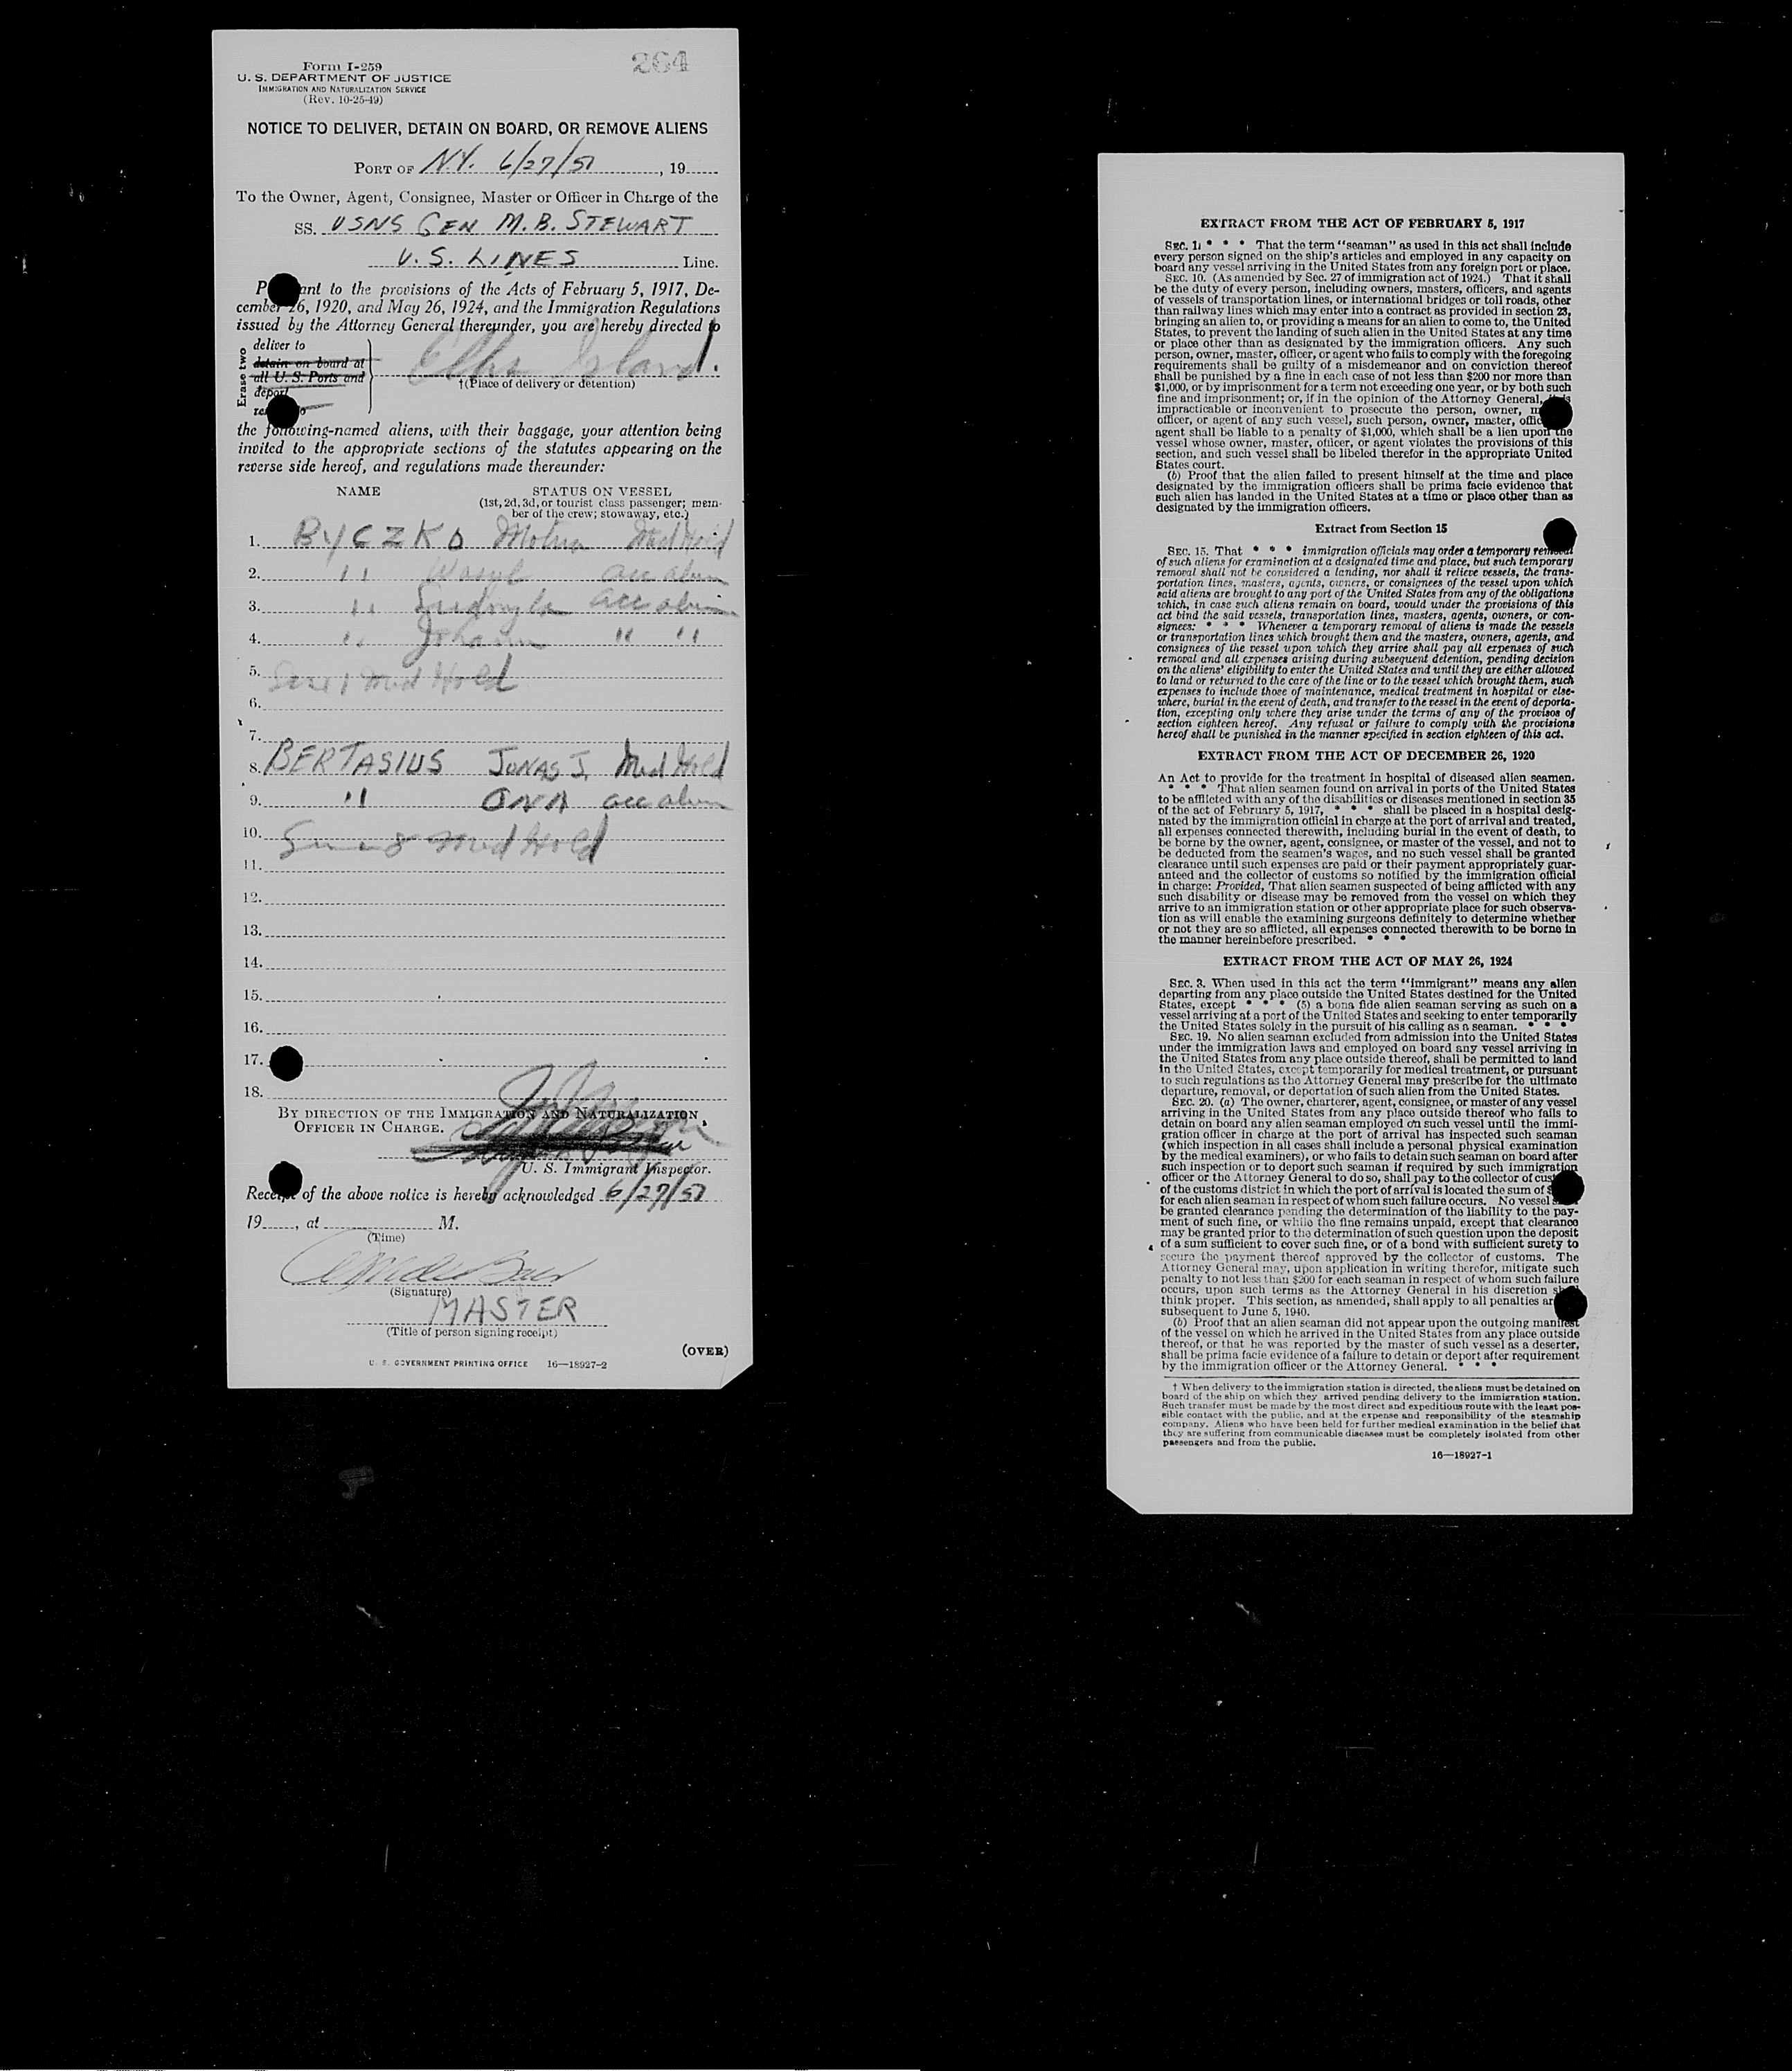 264
Form I-259
U. S. DEPARTMENT OF JUSTICE
IMMIGRATION AND NATURALIZATION SERVICE
(Rev. 10-25-49)
NOTICE TO DELIVER, DETAIN ON BOARD, OR REMOVE ALIENS
PORT OF N.Y. 6/27/51, 19
To the Owner, Agent, Consignee, Master or Officer in Charge of the
SS. USNS GEN M.B. STEWART
U.S. LINES Line.
P ant to the provisions of the Acts of February 5, 1917, De-
cember 26, 1920, and May 26, 1924, and the Immigration Regulations
issued by the Attorney General thereunder, you are hereby directed to
Erase two
deliver to
detain on board at
all U. S. Ports and
deport
Ellis Island.
†(Place of delivery or detention)
the following-named aliens, with their baggage, your attention being
invited to the appropriate sections of the statutes appearing on the
reverse side hereof, and regulations made thereunder:
NAME STATUS ON VESSEL
(1st, 2d, 3d, or tourist class passenger; mem-
ber of the crew; stowaway, etc.)
1. BYCZKO Motria Med Hold
2. " Wasyl acc alien
3. " acc alien
4. " " "
5. Med Hold
6.
7.
8. BERTASIUS JONAS J. Med Hold
9. " ONA acc alien
10. Med Hold
11.
12.
13.
14.
15.
16.
17.
18.
BY DIRECTION OF THE IMMIGRATION AND NATURALIZATION
OFFICER IN CHARGE.
U. S. Immigrant Inspector.
Receipt of the above notice is hereby acknowledged 6/27/51
19, at M.
(Time)
(Signature)
MASTER
(Title of person signing receipt)
(OVER)
U. S. GOVERNMENT PRINTING OFFICE 16—18927-2
EXTRACT FROM THE ACT OF FEBRUARY 5, 1917
SEC. 1. * * * That the term "seaman" as used in this act shall include
every person signed on the ship's articles and employed in any capacity on
board any vessel arriving in the United States from any foreign port or place.
SEC. 10. (As amended by Sec. 27 of immigration act of 1924.) That it shall
be the duty of every person, including owners, masters, officers, and agents
of vessels of transportation lines, or international bridges or toll roads, other
than railway lines which may enter into a contract as provided in section 23,
bringing an alien to, or providing a means for an alien to come to, the United
States, to prevent the landing of such alien in the United States at any time
or place other than as designated by the immigration officers. Any such
person, owner, master, officer, or agent who fails to comply with the foregoing
requirements shall be guilty of a misdemeanor and on conviction thereof
shall be punished by a fine in each case of not less than $200 nor more than
$1,000, or by imprisonment for a term not exceeding one year, or by both such
fine and imprisonment; or, if in the opinion of the Attorney General, it is
impracticable or inconvenient to prosecute the person, owner, m
officer, or agent of any such vessel, such person, owner, master, offic
agent shall be liable to a penalty of $1,000, which shall be a lien upon the
vessel whose owner, master, officer, or agent violates the provisions of this
section, and such vessel shall be libeled therefor in the appropriate United
States court.
(b) Proof that the alien failed to present himself at the time and place
designated by the immigration officers shall be prima facie evidence that
such alien has landed in the United States at a time or place other than as
designated by the immigration officers.
Extract from Section 15
SEC. 15. That * * * immigration officials may order a temporary removal
of such aliens for examination at a designated time and place, but such temporary
removal shall not be considered a landing, nor shall it relieve vessels, the trans-
portation lines, masters, agents, owners, or consignees of the vessel upon which
said aliens are brought to any port of the United States from any of the obligations
which, in case such aliens remain on board, would under the provisions of this
act bind the said vessels, transportation lines, masters, agents, owners, or con-
signees: * * * Whenever a temporary removal of aliens is made the vessels
or transportation lines which brought them and the masters, owners, agents, and
consignees of the vessel upon which they arrive shall pay all expenses of such
removal and all expenses arising during subsequent detention, pending decision
on the aliens' eligibility to enter the United States and until they are either allowed
to land or returned to the care of the line or to the vessel which brought them, such
expenses to include those of maintenance, medical treatment in hospital or else-
where, burial in the event of death, and transfer to the vessel in the event of deporta-
tion, excepting only where they arise under the terms of any of the provisos of
section eighteen hereof. Any refusal or failure to comply with the provisions
hereof shall be punished in the manner specified in section eighteen of this act.
EXTRACT FROM THE ACT OF DECEMBER 26, 1920
An Act to provide for the treatment in hospital of diseased alien seamen.
* * * That alien seamen found on arrival in ports of the United States
to be afflicted with any of the disabilities or diseases mentioned in section 35
of the act of February 5, 1917, * * * shall be placed in a hospital desig-
nated by the immigration official in charge at the port of arrival and treated,
all expenses connected therewith, including burial in the event of death, to
be borne by the owner, agent, consignee, or master of the vessel, and not to
be deducted from the seamen's wages, and no such vessel shall be granted
clearance until such expenses are paid or their payment appropriately guar-
anteed and the collector of customs so notified by the immigration official
in charge: Provided, That alien seamen suspected of being afflicted with any
such disability or disease may be removed from the vessel on which they
arrive to an immigration station or other appropriate place for such observa-
tion as will enable the examining surgeons definitely to determine whether
or not they are so afflicted, all expenses connected therewith to be borne in
the manner hereinbefore prescribed. * * *
EXTRACT FROM THE ACT OF MAY 26, 1924
SEC. 3. When used in this act the term "immigrant" means any alien
departing from any place outside the United States destined for the United
States, except * * * (5) a bona fide alien seaman serving as such on a
vessel arriving at a port of the United States and seeking to enter temporarily
the United States solely in the pursuit of his calling as a seaman. * * *
SEC. 19. No alien seaman excluded from admission into the United States
under the immigration laws and employed on board any vessel arriving in
the United States from any place outside thereof, shall be permitted to land
in the United States, except temporarily for medical treatment, or pursuant
to such regulations as the Attorney General may prescribe for the ultimate
departure, removal, or deportation of such alien from the United States.
SEC. 20. (a) The owner, charterer, agent, consignee, or master of any vessel
arriving in the United States from any place outside thereof who fails to
detain on board any alien seaman employed on such vessel until the immi-
gration officer in charge at the port of arrival has inspected such seaman
(which inspection in all cases shall include a personal physical examination
by the medical examiners), or who fails to detain such seaman on board after
such inspection or to deport such seaman if required by such immigration
officer or the Attorney General to do so, shall pay to the collector of cus
of the customs district in which the port of arrival is located the sum of $
for each alien seaman in respect of whom such failure occurs. No vessel s
be granted clearance pending the determination of the liability to the pay-
ment of such fine, or while the fine remains unpaid, except that clearance
may be granted prior to the determination of such question upon the deposit
of a sum sufficient to cover such fine, or of a bond with sufficient surety to
secure the payment thereof approved by the collector of customs. The
Attorney General may, upon application in writing therefor, mitigate such
penalty to not less than $200 for each seaman in respect of whom such failure
occurs, upon such terms as the Attorney General in his discretion shall
think proper. This section, as amended, shall apply to all penalties ar
subsequent to June 5, 1940.
(b) Proof that an alien seaman did not appear upon the outgoing manifest
of the vessel on which he arrived in the United States from any place outside
thereof, or that he was reported by the master of such vessel as a deserter,
shall be prima facie evidence of a failure to detain or deport after requirement
by the immigration officer or the Attorney General. * * *
† When delivery to the immigration station is directed, the aliens must be detained on
board of the ship on which they arrived pending delivery to the immigration station.
Such transfer must be made by the most direct and expeditious route with the least pos-
sible contact with the public, and at the expense and responsibility of the steamship
company. Aliens who have been held for further medical examination in the belief that
they are suffering from communicable diseases must be completely isolated from other
passengers and from the public.
16—18927-1